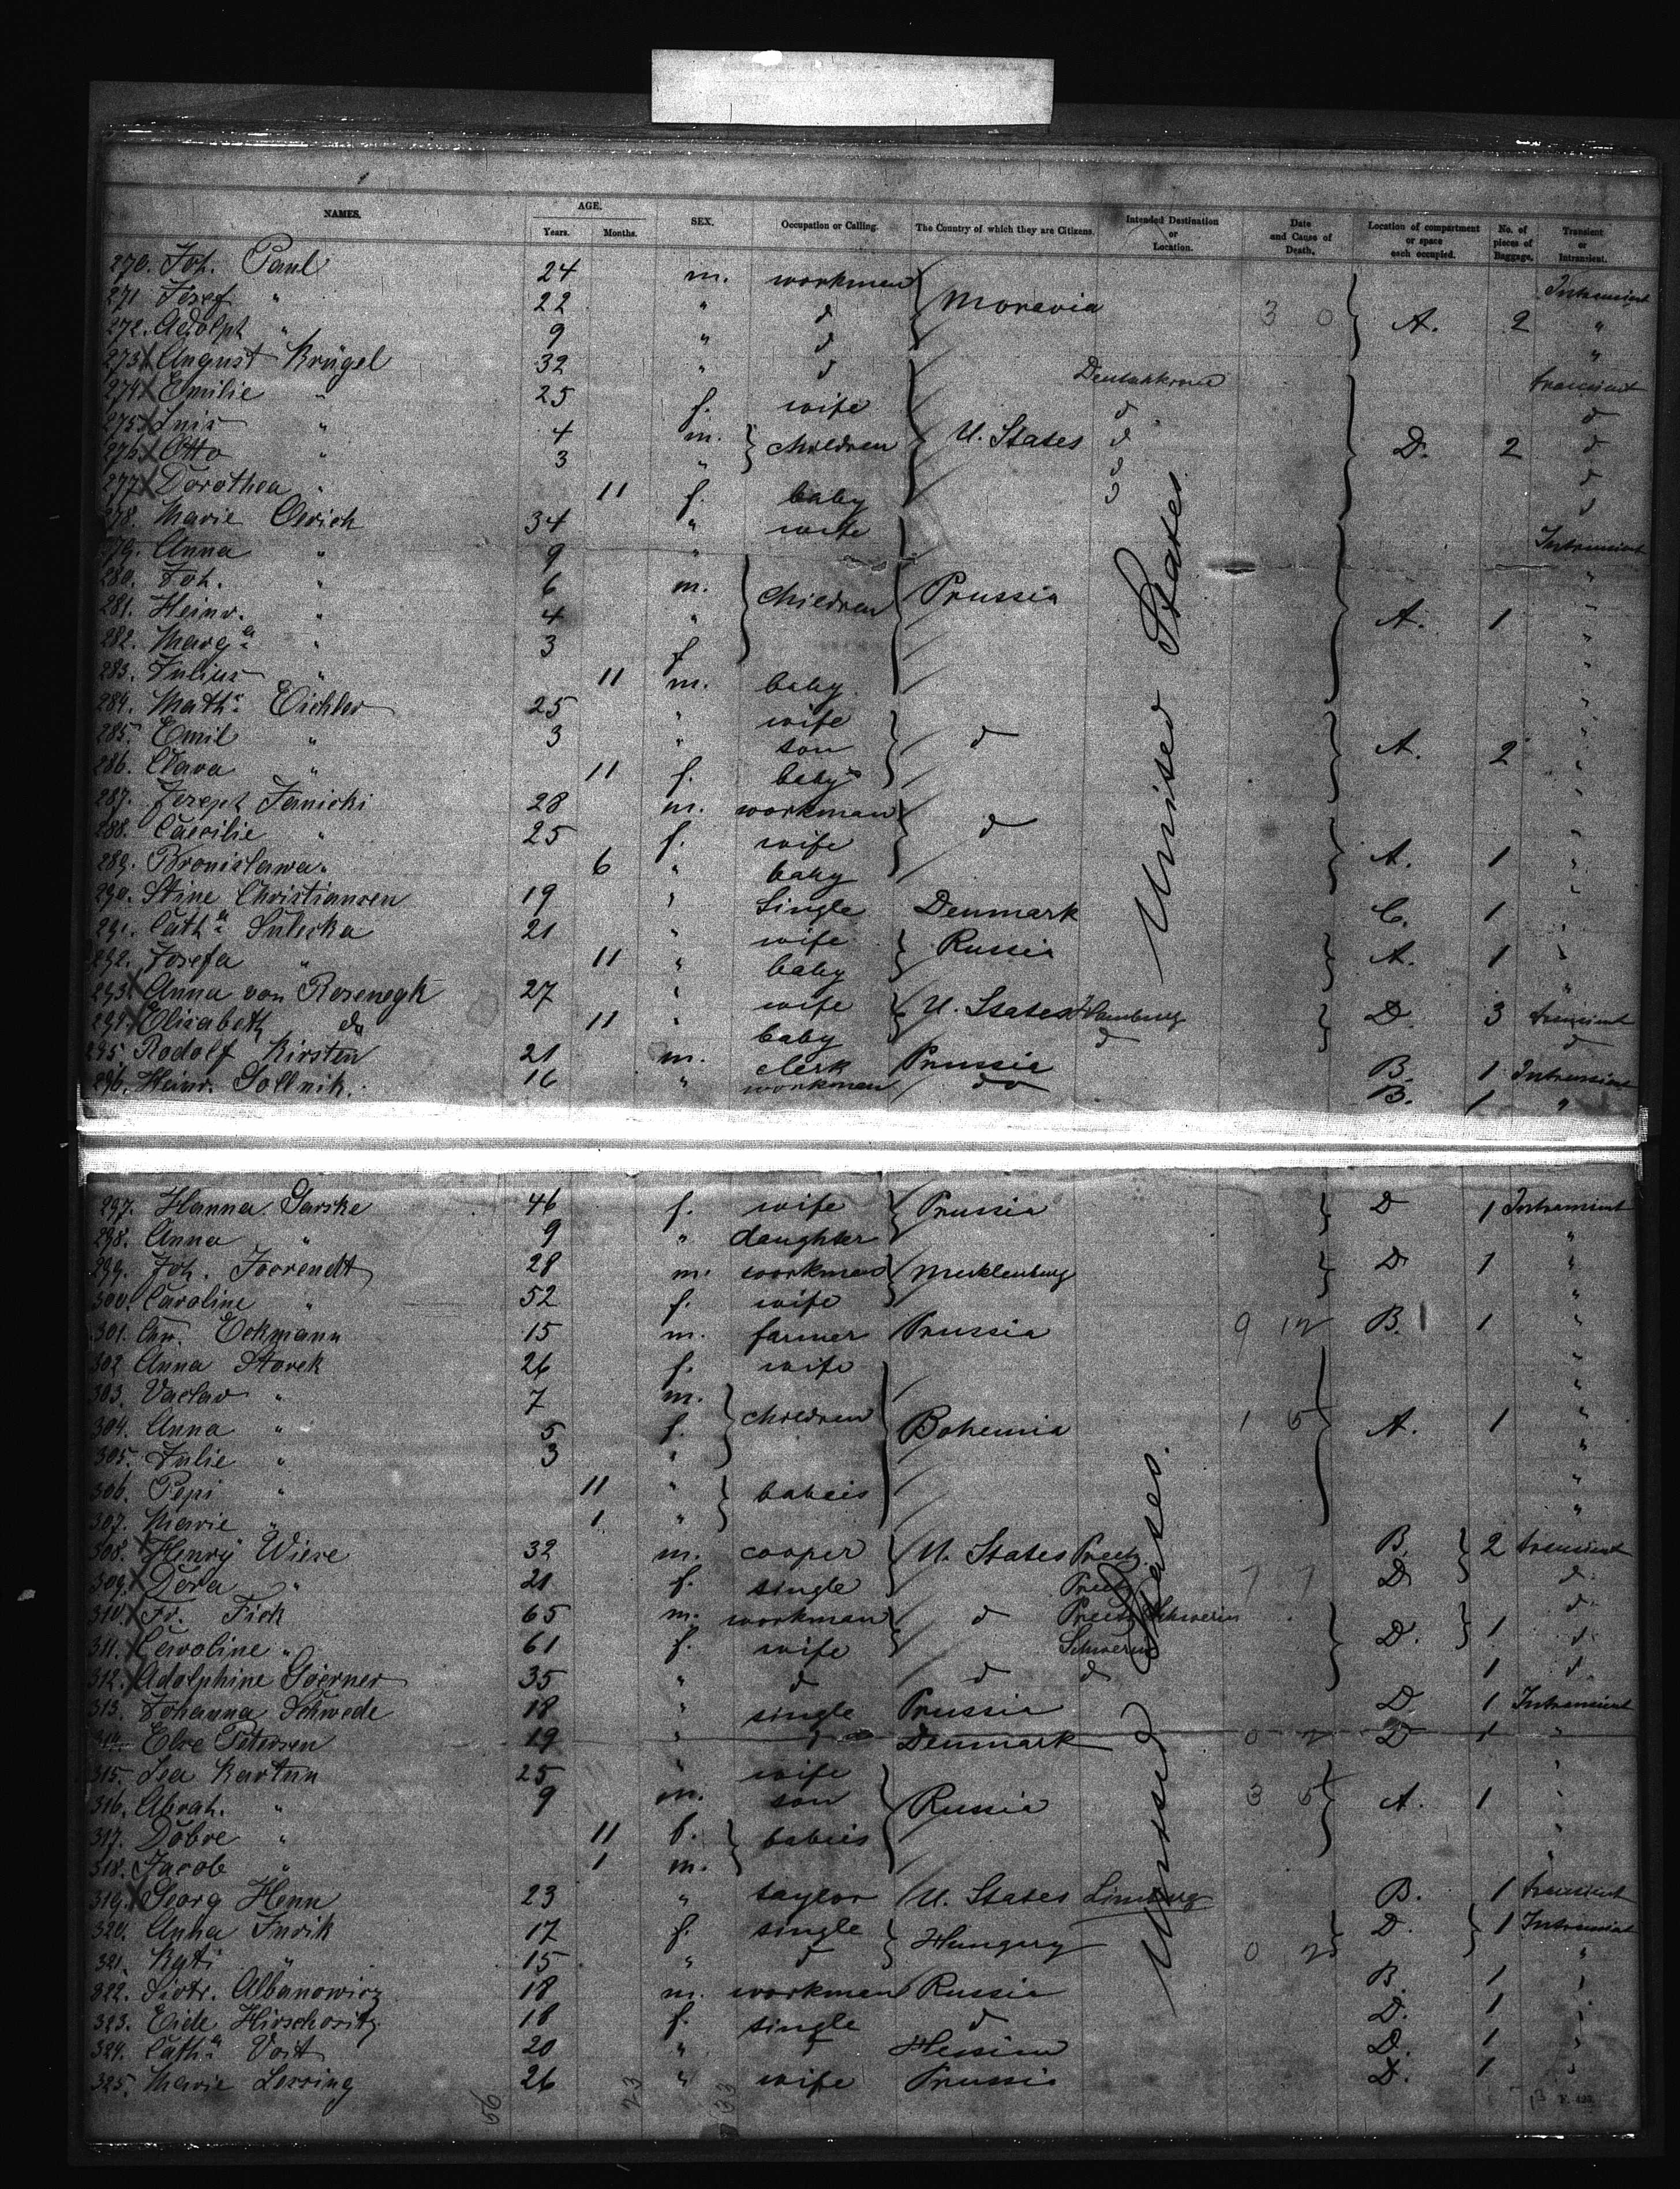 NAMES. AGE. Years. Months. SEX. Occupation or Calling. The Country of which they are Citizens. Intended Destination or Location. Date and Cause of Death. Location of compartment or space each occupied. No. of pieces of Baggage. Transient or Intransient.
270. Joh. Paul 24 m. workman Moravia Intransient
271. Josef " 22 " d A. 2 "
272. Adolph " 9 " d "
273. August Krügel 32 " d transient
274. Emilie " 25 f. wife d
275. Luis " 4 m. children U. States d D. 2 d
276. Otto " 3 " d
277. Dorothea " 11 f. baby d
278. Marie 34 " wife Intransient
279. Anna " 9 " "
280. Joh. " 6 m. children Prussia "
281. Heinr. " 4 " A. 1 "
282. Marg.a " 3 f "
283. Julius " 11 m. baby "
284. Math.e Eichler 25 " wife "
285. Emil " 3 " son d A. 2 "
286. Clara " 11 f. baby "
287. Joseph Janicki 28 m. workman "
288. Caecilie " 25 f. wife d "
289. Bronislawa " 6 " baby A. 1 "
290. Stine Christiansen 19 " Single Denmark C. 1 "
291. Cath.a Sulecka 21 " wife Russia "
292. Josefa " 11 " baby A. 1 "
293. Anna von Rosenegk 27 " wife U. States Hamburg D. 3 transient
294. Elisabeth do 11 " baby d d
295. Rodolf Kirsten 21 m. clerk Prussia B. 1 Intransient
296. Heinr. Sollnik. 16 " workman do B. 1 "
United States.
297. Hanna Garske 46 f. wife Prussia D 1 Intransient
298. Anna " 9 " daughter "
299. Joh. 28 m. workman Mecklenburg D. 1 "
300. Caroline " 52 f. wife "
301. Chr. Eckmann 15 m. farmer Prussia B. 1 "
302. Anna Storek 26 f. wife "
303. Vaclav " 7 m. "
304. Anna " 5 f. children Bohemia A. 1 "
305. Julie " 3 " "
306. Pepi " 11 " babeis "
307. Marie " 1 " "
308. Henry Wiese 32 m. cooper U. States Preetz B. 2 transient
309. Dora " 21 f. single Preetz D d.
310. Fr. Fick 65 m. workman d Schwerin d.
311. Caroline " 61 f. wife Schwerin D. 1 d.
312. Adolphine Goerner 35 " d d d 1 d.
313. Johanna Schwede 18 " single Prussia D. 1 Intransient
314. Else Petersen 19 " d Denmark D 1 "
315. Lea 25 " wife "
316. Abrah. " 9 m. son Russia A. 1 "
317. Dobre " 11 f. babeis "
318. Jacob " 1 m. "
319. Georg Henn 23 " taylor U. States Limburg B. 1 transient
320. Anna 17 f. single Hungary D. 1 Intransient
321. Kati " 15 " d "
322. Albanowicz 18 m. workman Russia B. 1 "
323. 18 f. single d D. 1 "
324. Cath.a Voit 20 " " Hessien D. 1 "
325. Marie Lessing 26 " wife Prussia D. 1 "
United States.
56 23 33